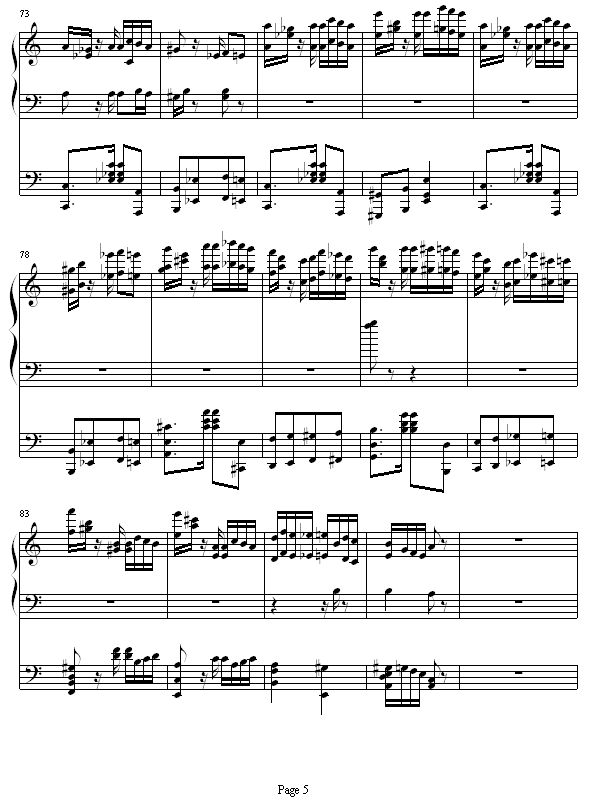 73
78
83
Page 5